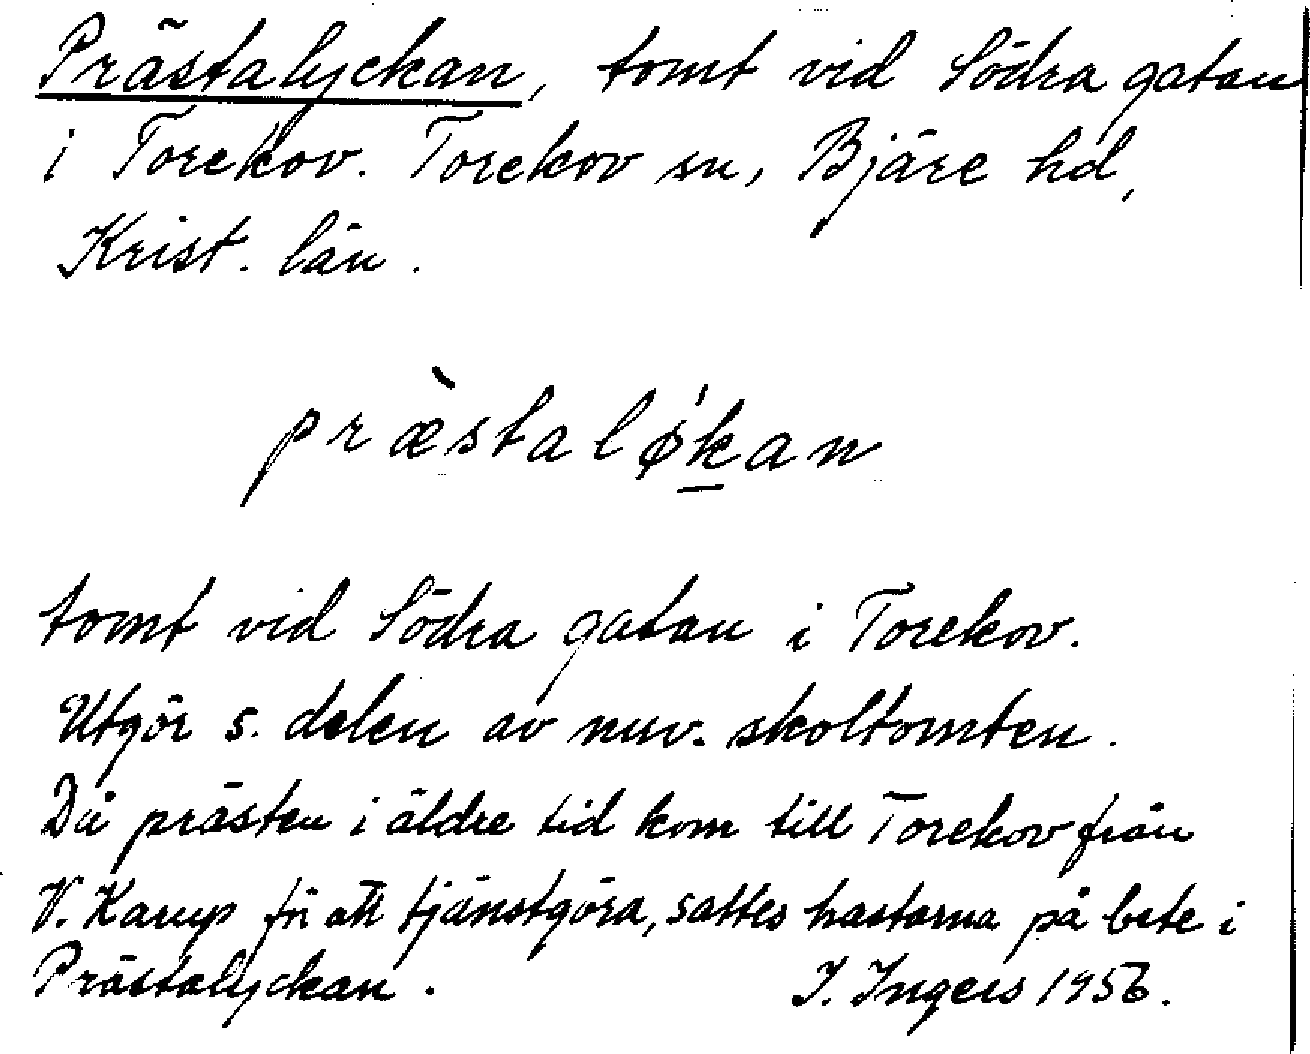 Prästalyckan, tomt vid Södra gatan
i Torekov. Torekov sn, Bjäre hd,
Krist. län.
præ̀stalǿk̲an
tomt vid Södra gatan i Torekov.
Utgör s. delen av nuv. skoltomten.
Då prästen i äldre tid kom till Torekov från
V. Karup för att tjänstgöra, sattes hästarna på bete i
Prästalyckan.
I. Ingers 1956.